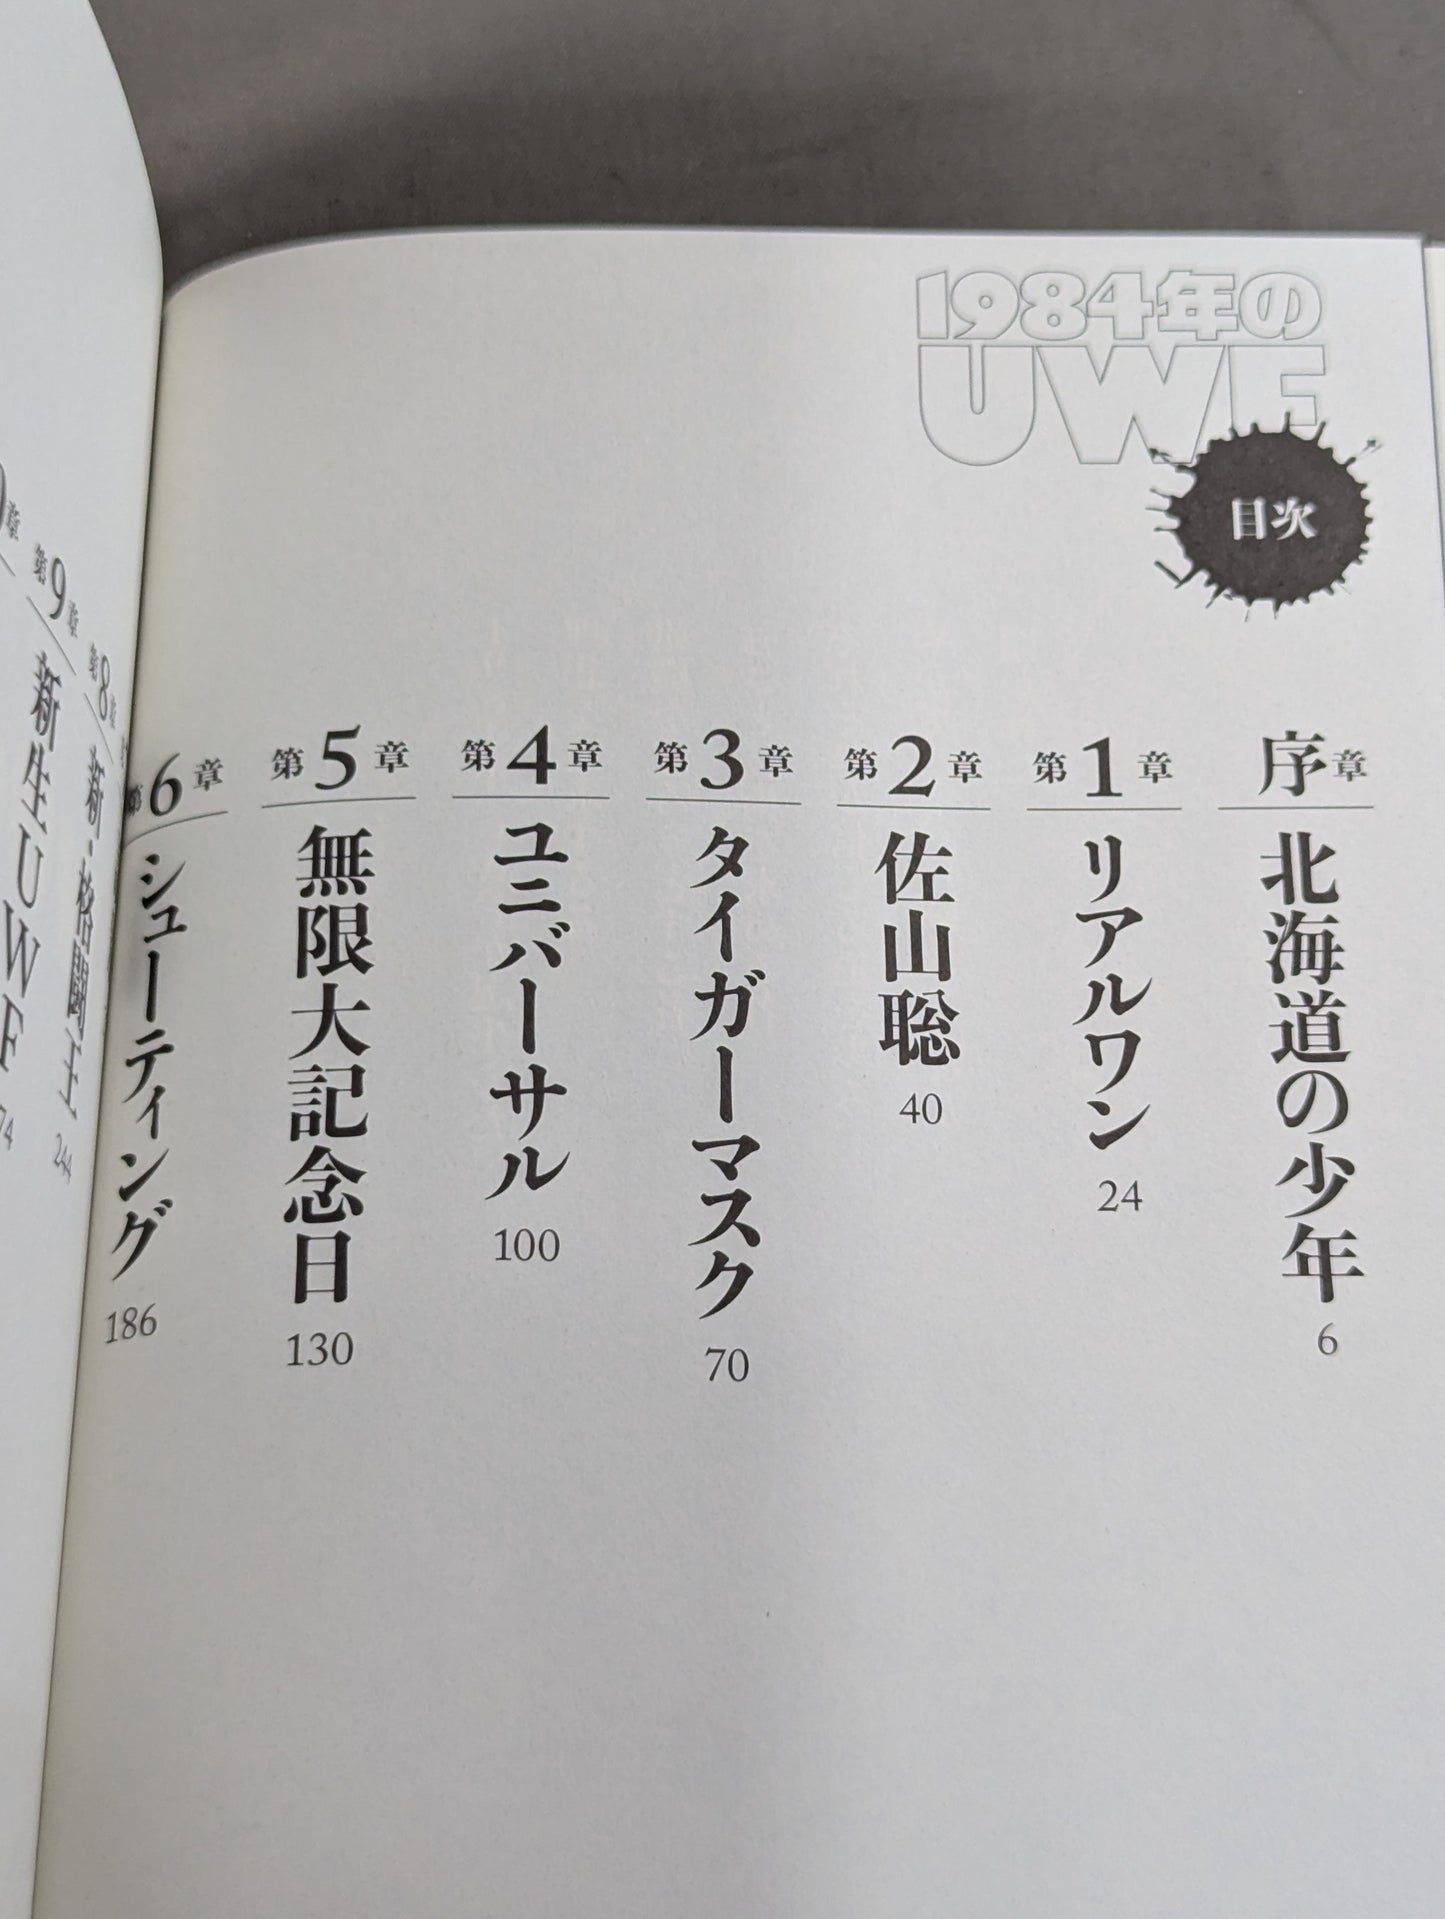 1984年の
UWF
目次
序章
北海道の少年
6
第1章
リアルワン
24
第2章
佐山聡
40
第3章
タイガーマスク
70
第4章
ユニバーサル
100
第5章
無限大記念日
130
第6章
シューティング
186
第8章
新・格闘王
第9章
新生UWF
章